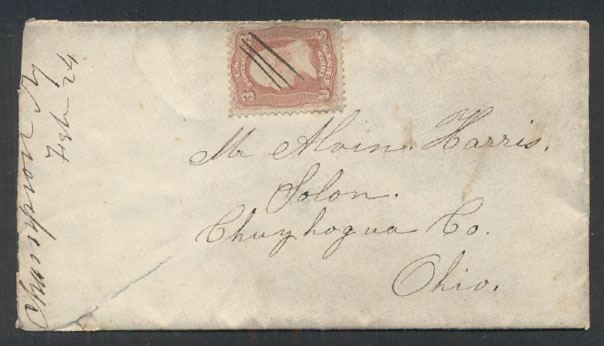 Champion N Y
Feb 24
3 3
Mr Alvin. Harris.
Solon.
Chuyhogua Co.
Ohio.